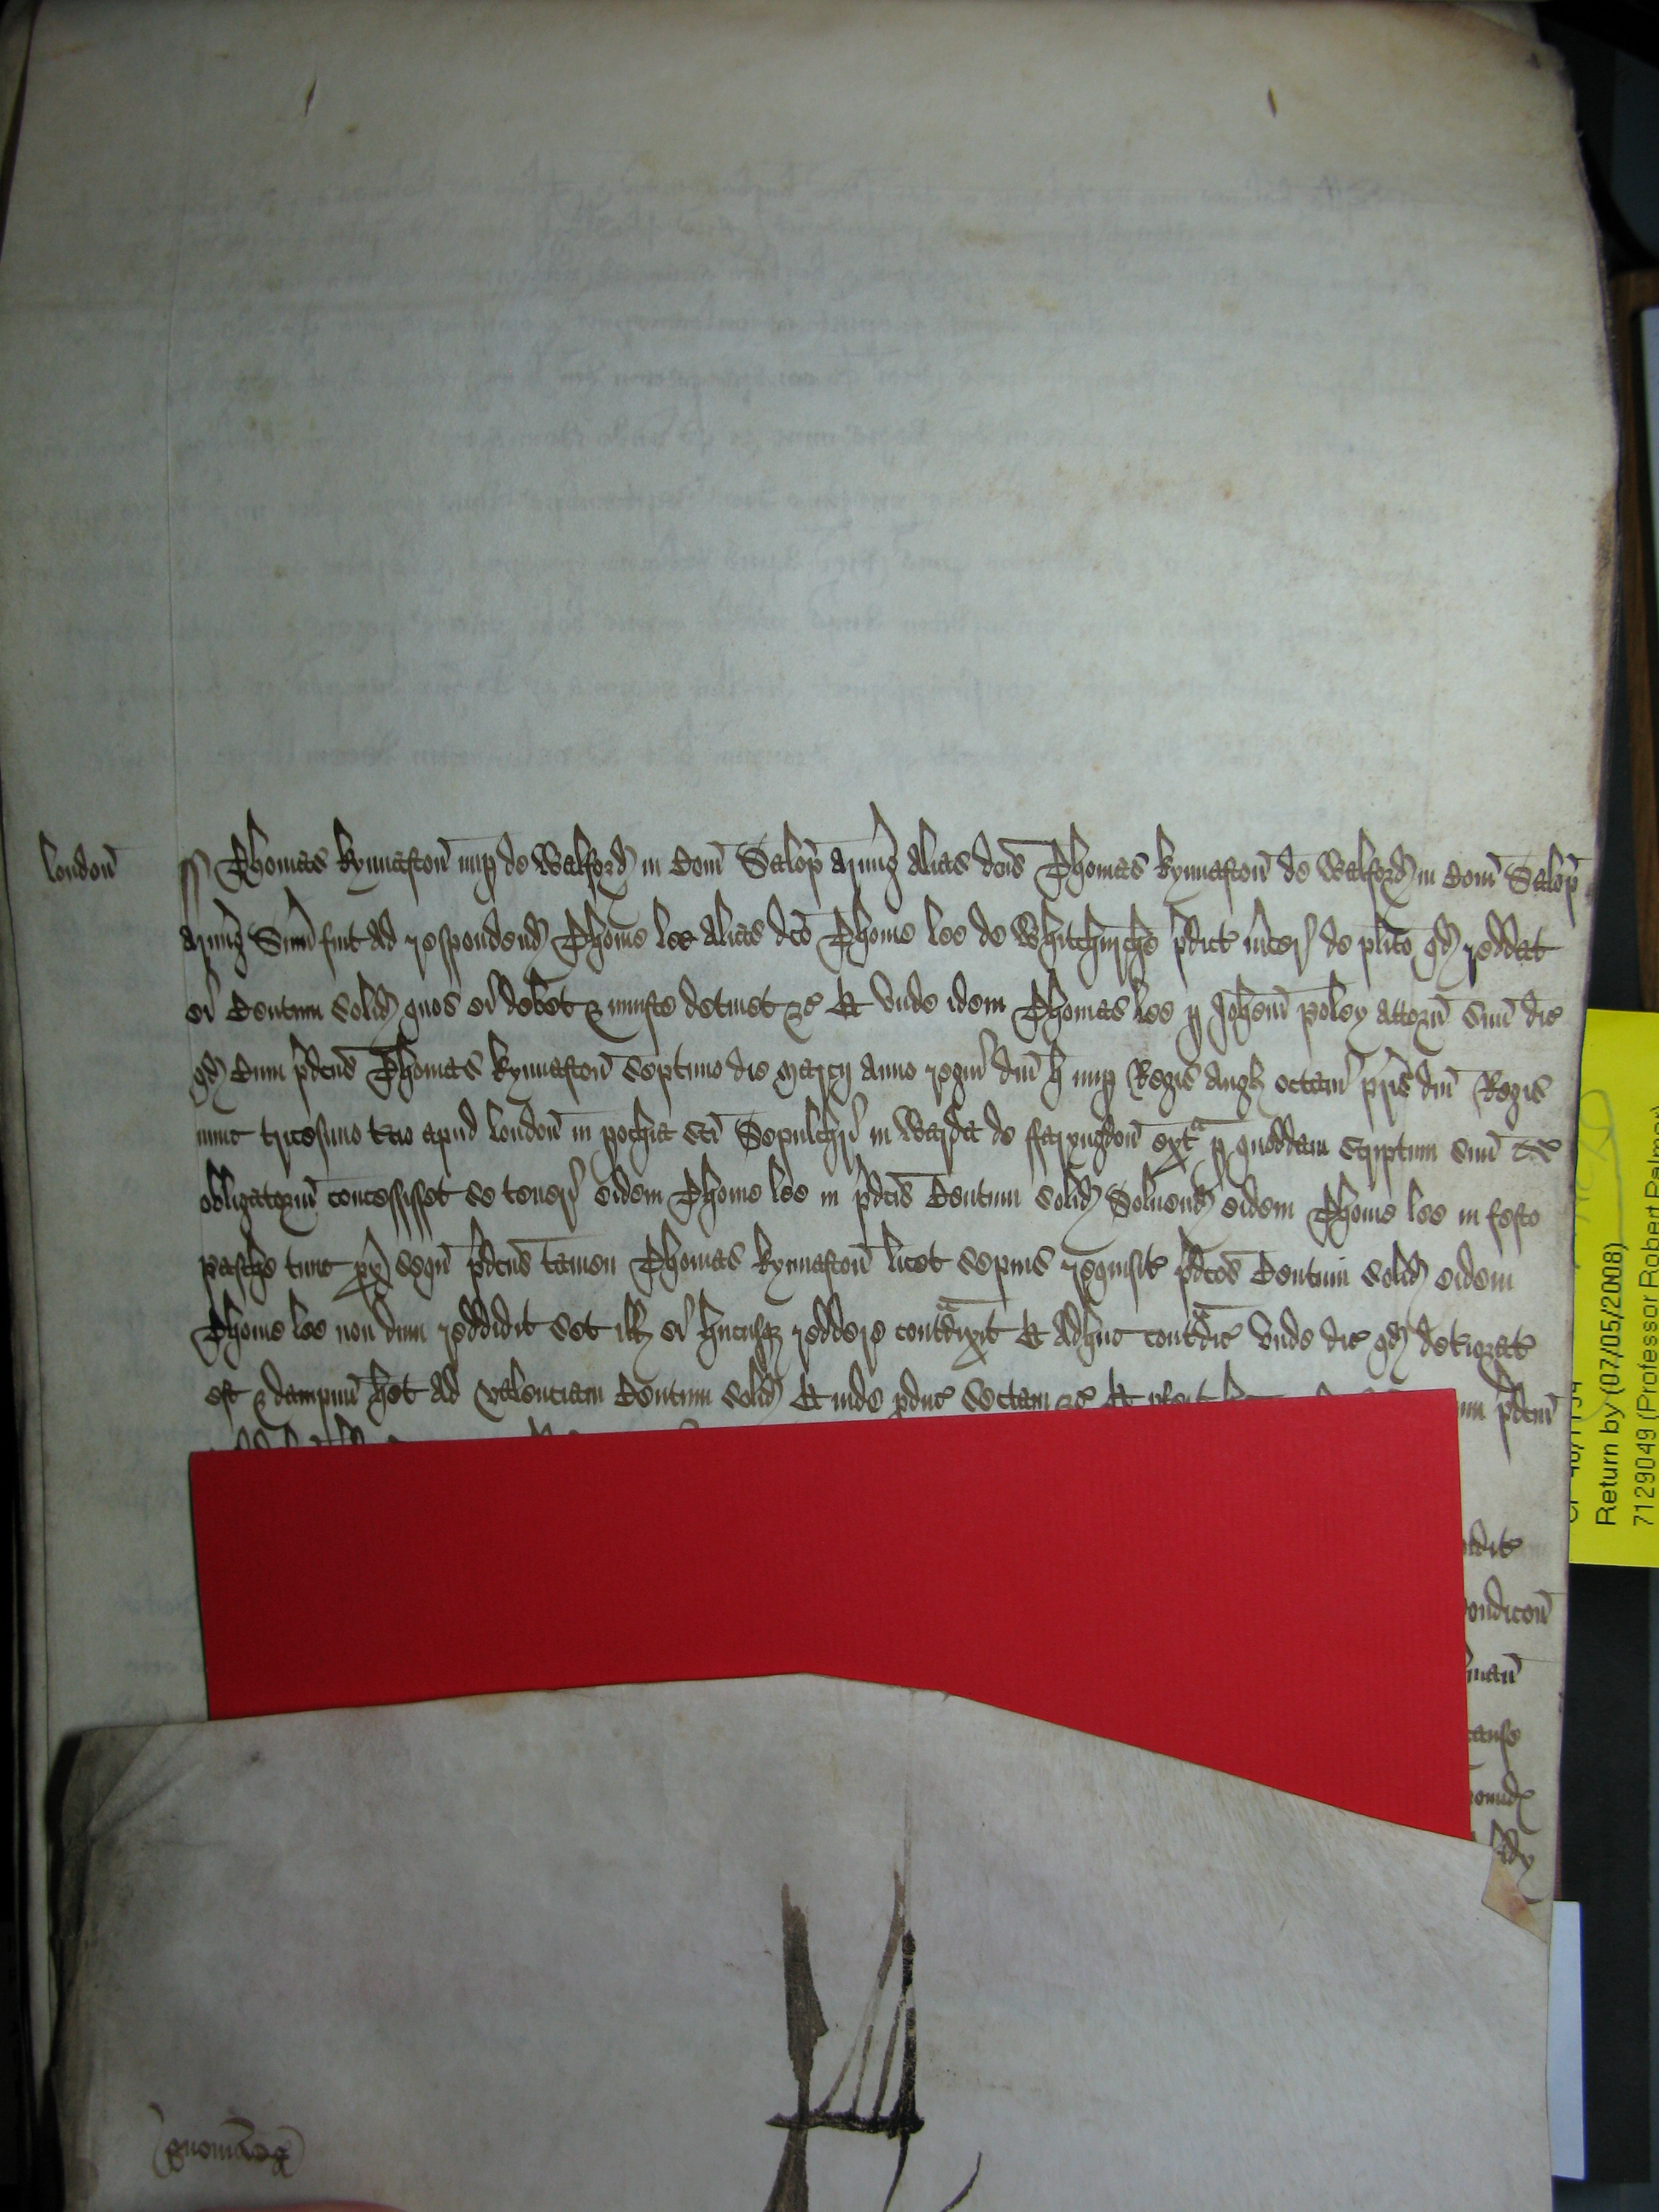 londoñ
Thomas kynnastoñ nup de Walford in Com̃ Salop armig̃ alias dc̃us Thomas kynnastoñ de Walford in Com̃ Salop
armig̃ Sum̃ fuit ad respondend Thome lee alias dc̃o Thome lee de Whitchirche p̃dict m̃cer de pl̃ito qd reddat
ei Centum solid quos ei debet & iniuste detinet &c Et unde idem Thomas lee p Joh̃em poley attorñ suũ dic
qd Cum p̃dc̃us Thomas kynnastoñ septimo die Marcij anno regni dñi h nup Regis Angl octaui p̃ris dñi Regis
nunc tricesimo t̃cio apud londoñ in pochia sc̃i Sepulchri in Warda de ffaryngdoñ ext̃ p quoddam scriptum suũ
obligatoriũ concessisset se teneri eidem Thome lee in p̃dc̃is Centum solid Soluend eidem Thome lee in festo
pasche tunc px̃ seqũ p̃dc̃us tamen Thomas kynnastoñ licet sepius requisit p̃dc̃os Centum solid eidem
Thome lee non dum reddidit set ill ei hucusq reddere cont̃dixit Et adhuc cont̃dic Unde dic qd det̃iorat
est & dampnũ het ad valenciam Centum solid Et inde pduc sectam &c Et p̃dc̃m
ondicoñ
cause
Return by (07/05/2008)
7129049 (Professor Robert Palmer)